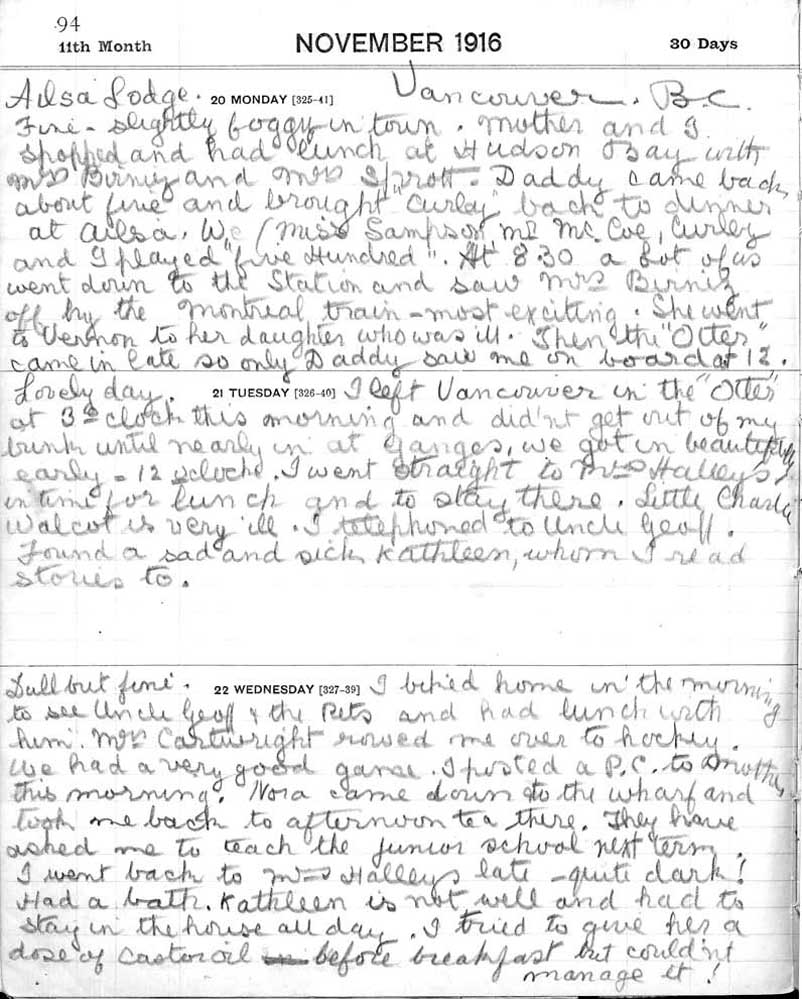 94
11th Month
NOVEMBER 1916
30 Days
Ailsa Lodge. 20 MONDAY [325-41] Vancouver. B.C.
Fine - slightly foggy in town. Mother and I
shopped and had lunch at Hudson Bay with
Mrs Birnie and Mrs Sprott. Daddy came back
about five and brought "Curley" back to dinner
at Ailsa. We (Miss Sampson, Mr Mc. Coe, Curley
and I played "five Hundred". At 8.30 a lot of us
went down to the Station and saw Mrs Birnie
off by the Montreal train - most exciting. She went
to Vernon to her daughter who was ill. Then the "Otter"
came in late so only Daddy saw me on board at 12.
Lovely day. 21 TUESDAY [326-40] I left Vancouver in the "Otter"
at 3 o'clock this morning and did'nt get out of my
bunk until nearly in at Ganges, we got in beautifully
early - 12 o'clock. I went straight to Mrs Halley's,
in time for lunch and to stay there. Little Charlie
Walcot is very ill. I telephoned to Uncle Geoff.
Found a sad and sick Kathleen, whom I read
stories to.
Dull but fine. 22 WEDNESDAY [327-39] I biked home in the morning
to see Uncle Geoff & the Pets and had lunch with
him. Mrs Cartwright rowed me over to hockey.
We had a very good game. I posted a P.C. to Mother
this morning. Nora came down to the wharf and
took me back to afternoon tea there. They have
asked me to teach the junior school next term.
I went back to Mrs Halleys late - quite dark!
Had a bath. Kathleen is not well and had to
stay in the house all day. I tried to give her a
dose of Castor oil before breakfast but could'nt
manage it!